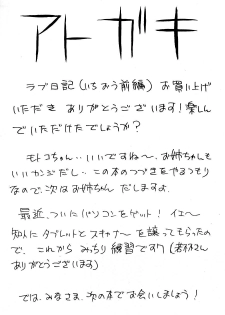 アトガキ
ラブ日記(いちおう前編)お買い上げ
いただき ありがとうございます!楽しん
でいただけたでしょうか?
モトコちゃん‥いいですね〜、お姉ちゃんも
いいカンジだし‥この本のつづきをやるつもり
なので、次はお姉ちゃん だしますよ。
最近、ついにパソコンをゲット! イエ〜
知人に タブレットと スキャナ〜 を譲ってもらったの
で、これから みっちり練習です?(若林さん
ありがとうございます)
では、みなさま、次の本でお会いしましょう!